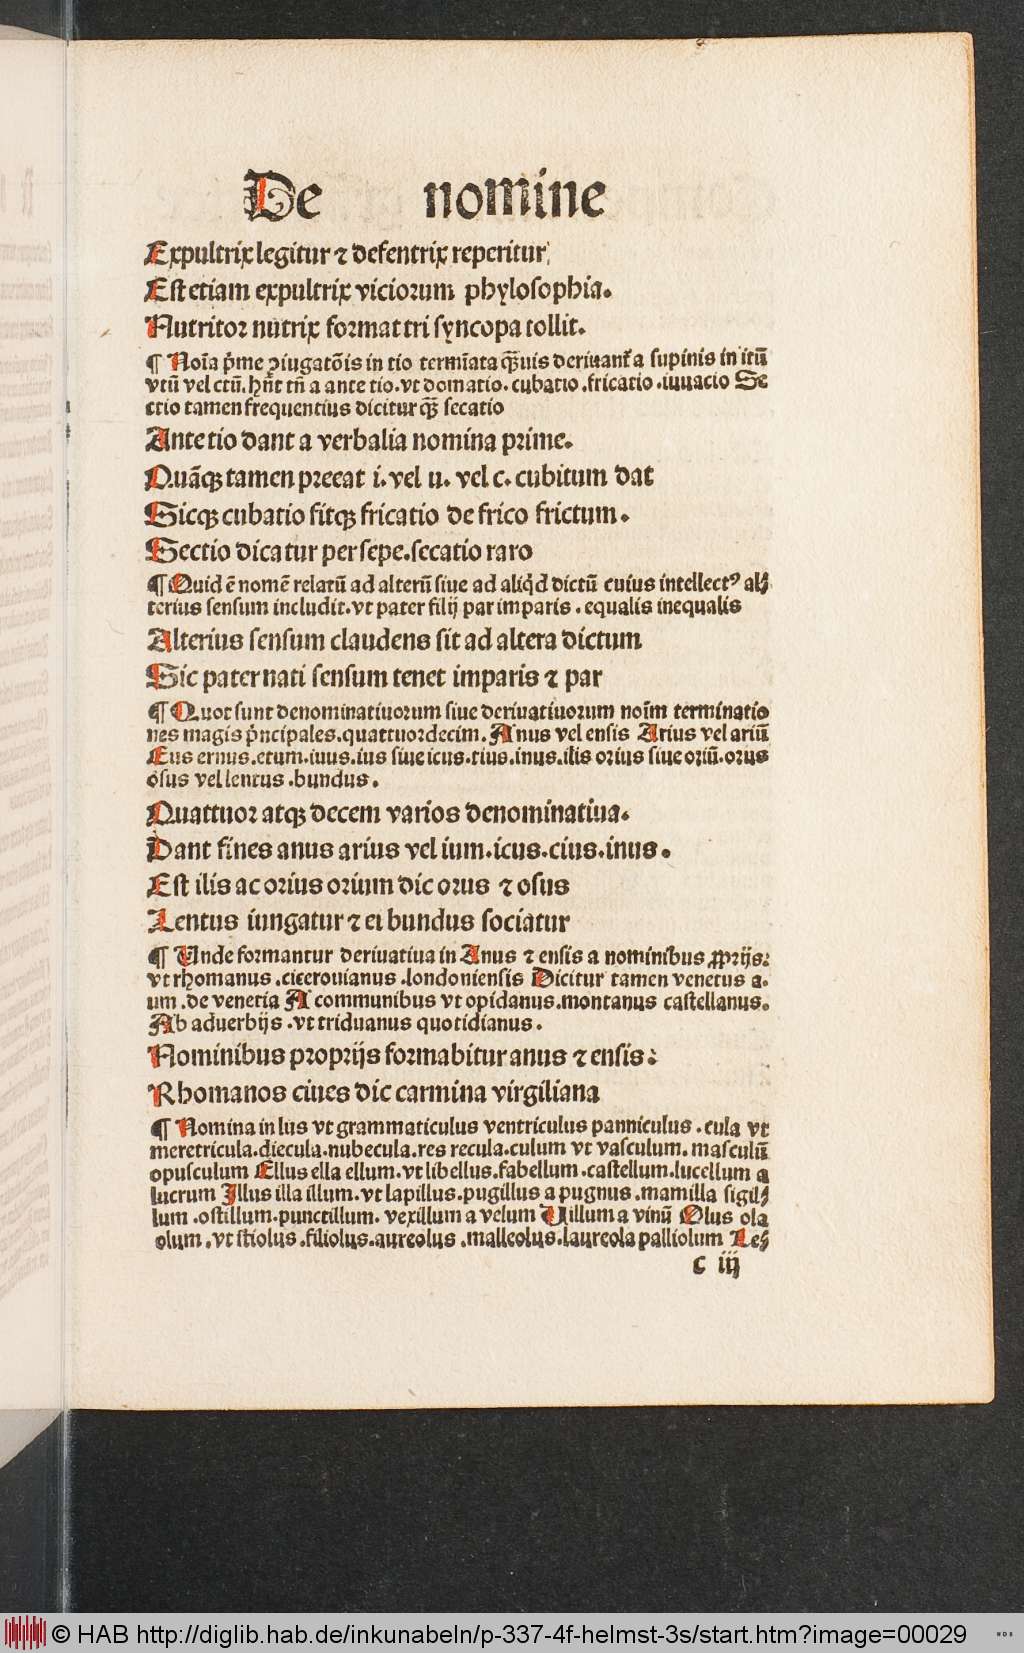 De nomine
Expultrix legitur ⁊ defentrix reperitur
Est etiam expultrix viciorum phylosophia.
Nutritor nutrix format tri syncopa tollit.
¶ Noĩa p̃me ꝯiugatõis in tio termĩata qᷓuis deriuant᷑ a supinis in itũ
vtũ vel ctũ. hñt tñ a ante tio. vt domatio. cubatio. fricatio. iuuacio Se
ctio tamen frequentius dicitur qᷓꝫ secatio
Ante tio dant a verbalia nomina prime.
Quãqꝫ tamen preeat i. vel u. vel c. cubitum dat
Sicqꝫ cubatio sitqꝫ fricatio de frico frictum.
Sectio dicatur per sepe. secatio raro
¶ Quid ẽ nomẽ relatũ ad alterũ siue ad aliqd̓ dictũ cuius intellectꝰ al⸗
terius sensum includit. vt pater filij par imparis. equalis inequalis
Alterius sensum claudens sit ad altera dictum
Sic pater nati sensum tenet imparis ⁊ par
¶ Quot sunt denominatiuorum siue deriuatiuorum noĩm terminatio
nes magis p̃ncipales. quattuordecim. Anus vel ensis Arius vel ariũ
Eus ernus. etum. iuus. ius siue icus. tius. inus. ilis orius siue oriũ. orus
osus vel lentus. bundus.
Quattuor atqꝫ decem varios denominatiua.
Dant fines anus arius vel ium. icus. cius. inus.
Est ilis ac orius orium dic orus ⁊ osus
Lentus iungatur ⁊ ei bundus sociatur
¶ Unde formantur deriuatiua in Anus ⁊ ensis a nominibus ꝓprijs:
vt rhomanus. cicerouianus. londoniensis Dicitur tamen venetus a.
um. de venetia A communibus vt opidanus. montanus castellanus.
Ab aduerbijs. vt triduanus quotidianus.
Nominibus proprijs formabitur anus ⁊ ensis:
Rhomanos ciues dic carmina virgiliana
¶ Nomina in lus vt grammaticulus ventriculus panniculus. cula vt
meretricula. diecula. nubecula. res recula. culum vt vasculum. masculũ
opusculum Ellus ella ellum. vt libellus. fabellum. castellum. lucellum a
lucrum Illus illa illum. vt lapillus. pugillus a pugnus. mamilla sigil⸗
lum. ostillum. punctillum. vexillum a velum Uillum a vinũ Olus ola
olum. vt filiolus. aureolus. malleolus. laureola palliolum Le⸗
c iij
© HAB http://diglib.hab.de/inkunabeln/p-337-4f-helmst-3s/start.htm?image=00029